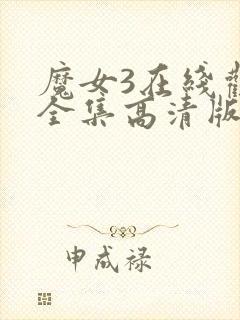 魔女3在线
全集高清版
申成禄